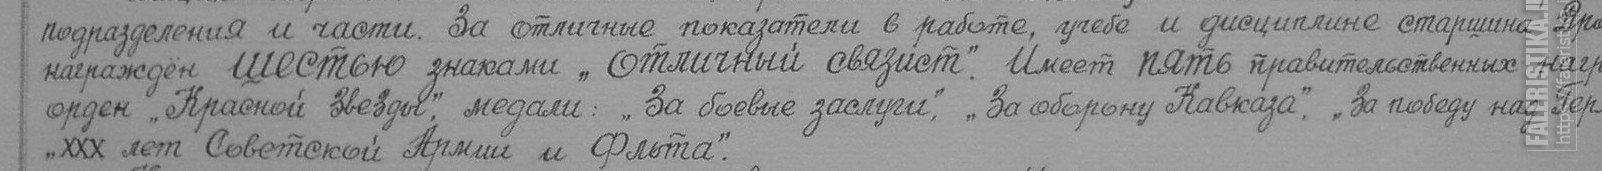 подразделения и части. За отличные показатели в работе, учебе и дисциплине старшина
награждён ШЕСТЬЮ знаками „Отличный связист". Имеет ПЯТЬ правительственных нагр
орден „Красной Звезды", медали: „За боевые заслуги", „За оборону Кавказа", „За победу над Гер
„XXX лет Советской Армии и Флота".
FALERISTIKA.I
http://falerist